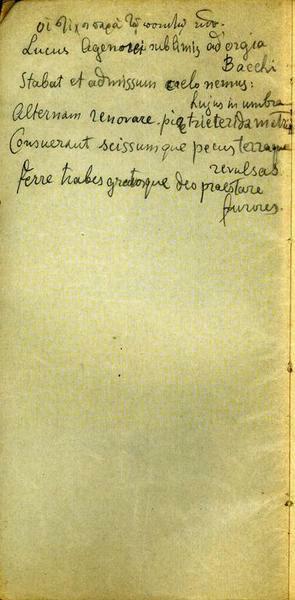 οἱ στίχοι παρὰ τῷ
Lucus Agenorei sublimis ad orgia
Bacchi
Stabat et admissum caelo nemus:
hujus in umbra
Alternam renovare piae trieterida matres
Consuerant scissumque pecus terraque
revulsas
Ferre trabes gratosque deo praestare
furores.